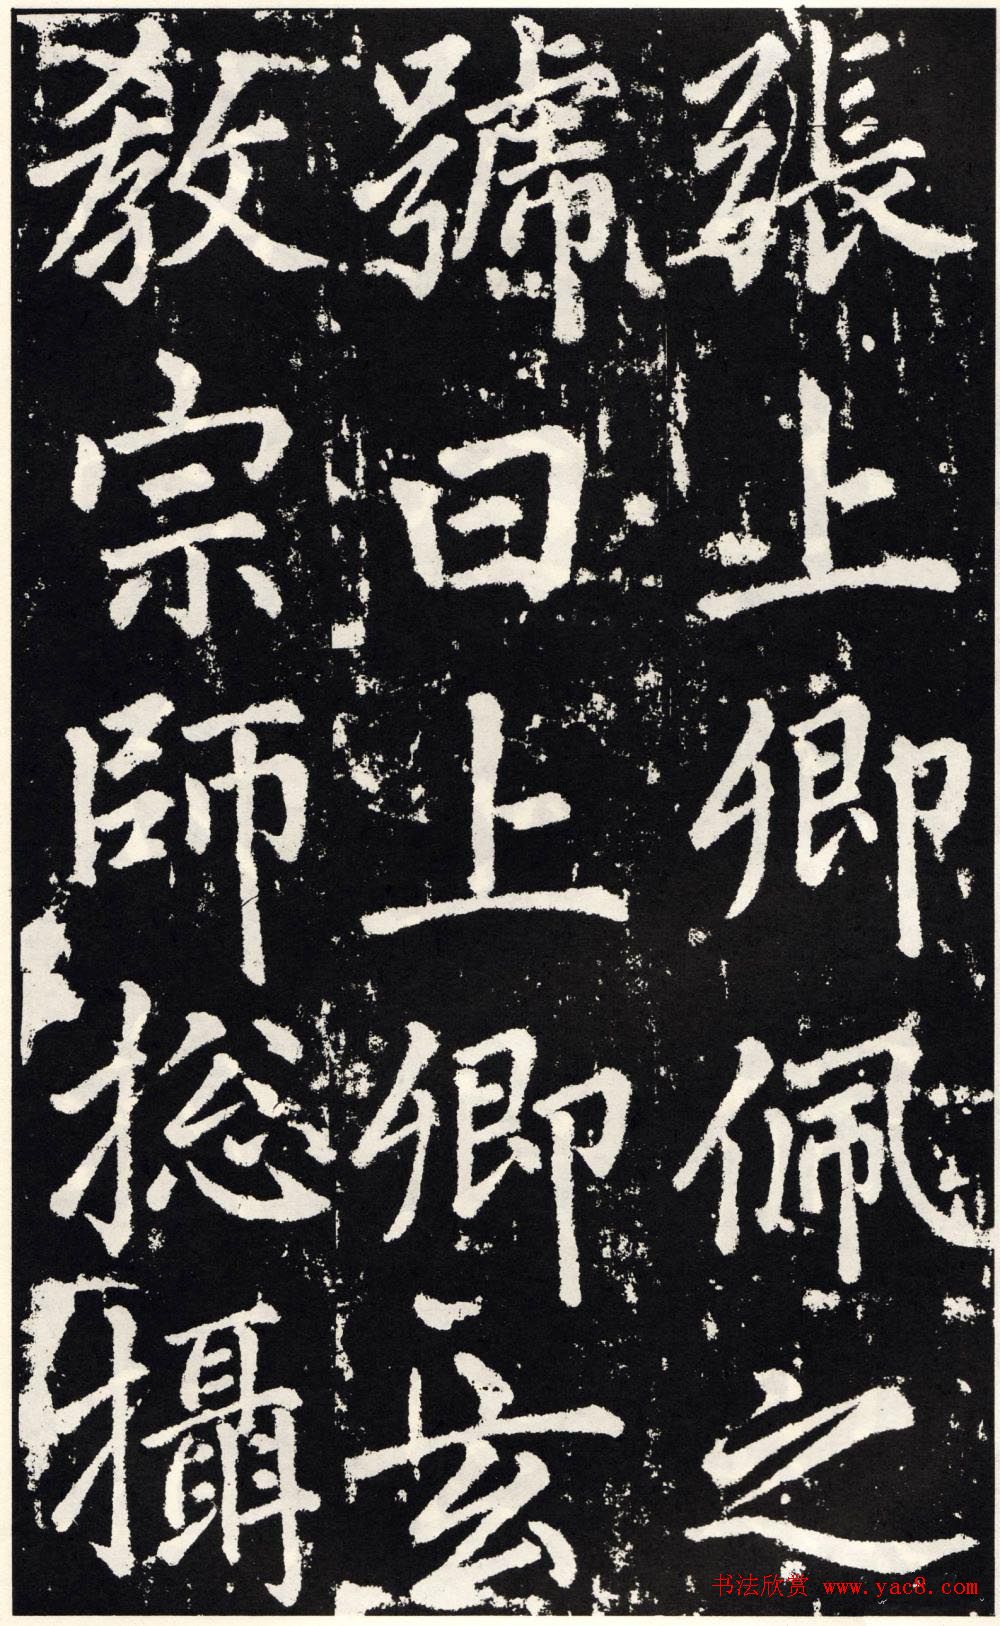 張上卿佩之
號曰上卿玄
教宗師揔攝
书法欣赏 www.yac8.com